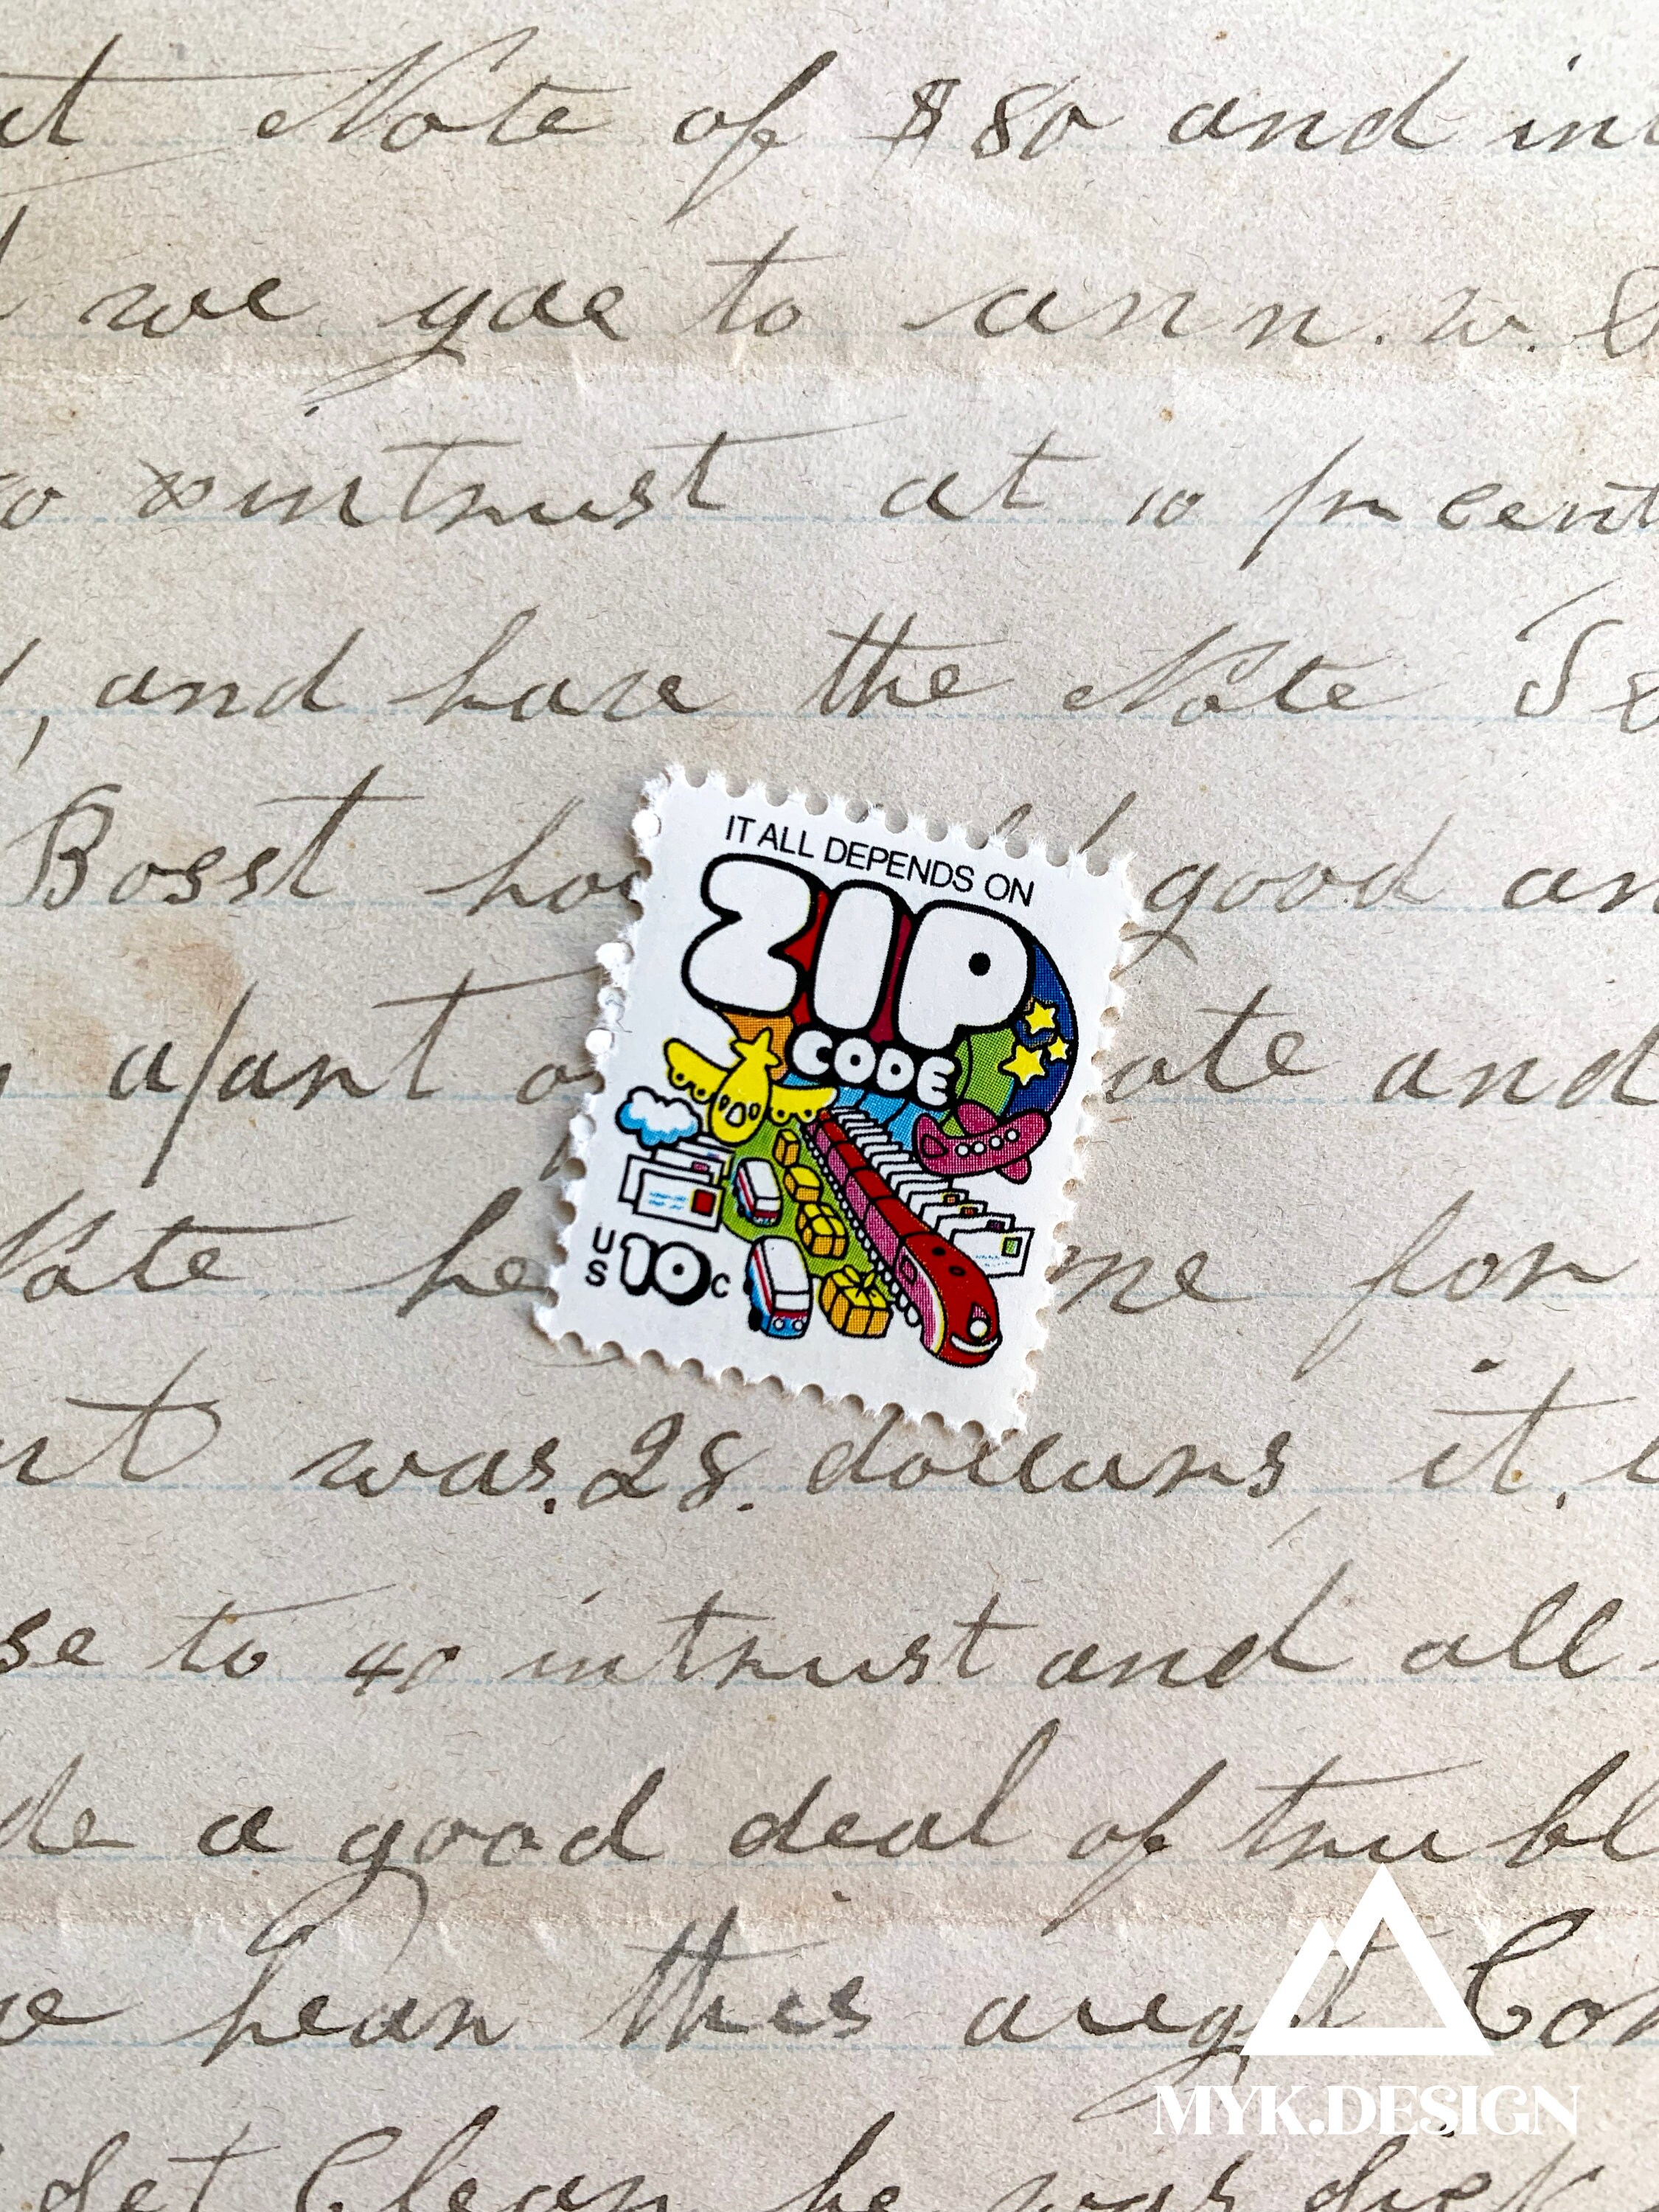 Note of $80 and int
we gae to ann. w.
intrust at 10 pr cent
, and have the Note Se
Bosst ho good an
a/ant o ate and
Note he me for
was. 28. dollars, it.
se to 40 intrust and all
de a good deal of trubl
hear this aregt Con
get Clean he was
IT ALL DEPENDS ON
ZIP
CODE
US 10c
MYK.DESIGN